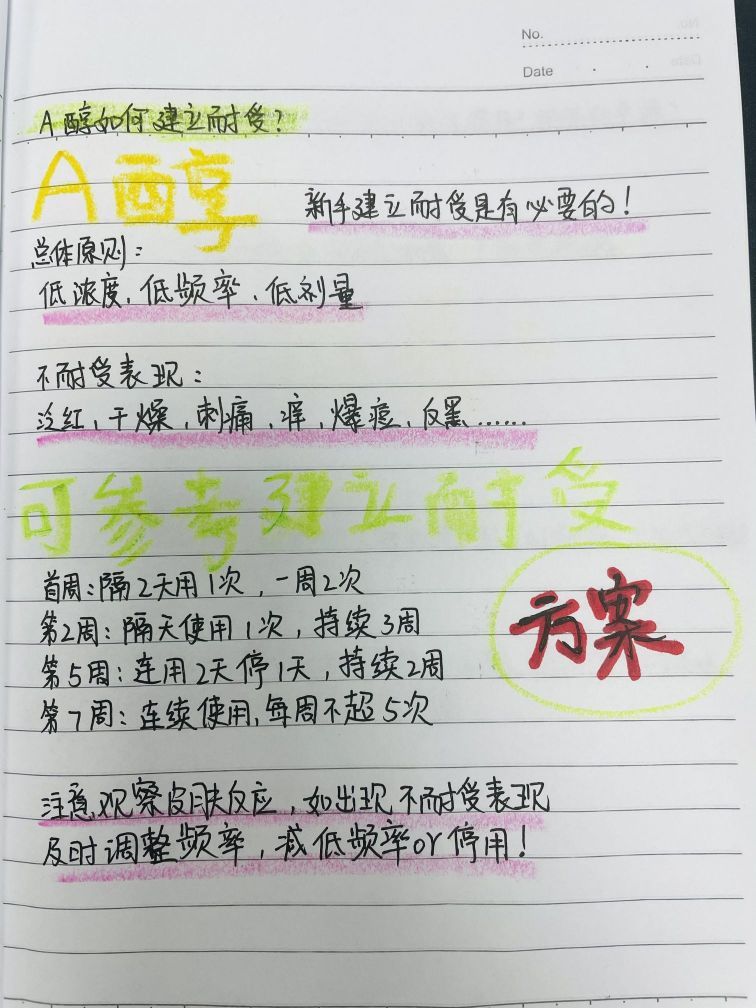 No.
Date
A醇如何建立耐受?
A醇
新手建立耐受是有必要的!
总体原则:
低浓度、低频率、低剂量
不耐受表现:
泛红、干燥、刺痛、痒、爆痘、反黑……
可参考建立耐受
方案
首周:隔2天用1次,一周2次
第2周:隔天使用1次,持续3周
第5周:连用2天停1天,持续2周
第7周:连续使用,每周不超5次
注意观察皮肤反应,如出现不耐受表现
及时调整频率,减低频率or停用!